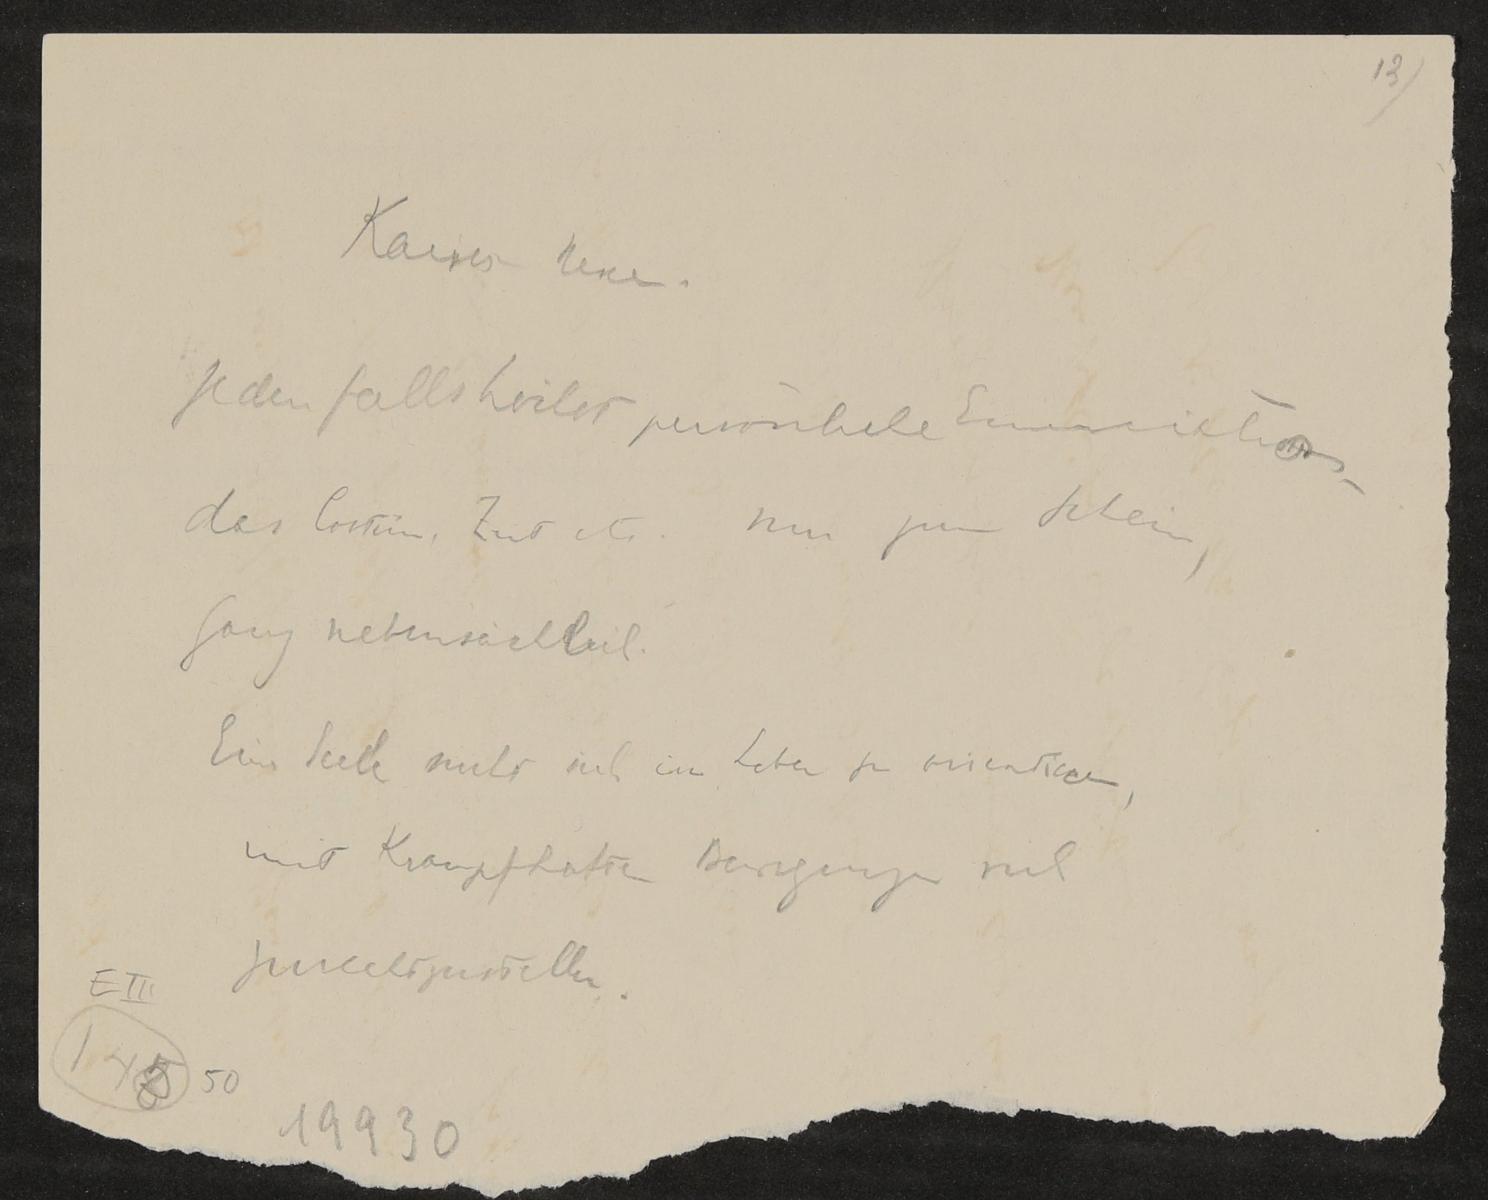 13)
Kaiser
Jedenfalls persönliche
das Costüm, Zeit etc. nur zum Schein,
ganz nebensächlich.
Eine Seele sucht sich im Leben zu orientieren,
mit Krampfhaften Bewegungen sich
zurechtzustellen.
E III
50
19930